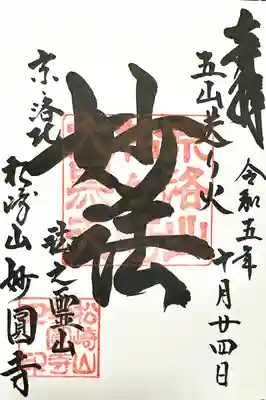 奉拝
五山送り火
令和五年
十月廿四日
妙法
京洛北
之霊山
松崎山妙圓寺
松崎山